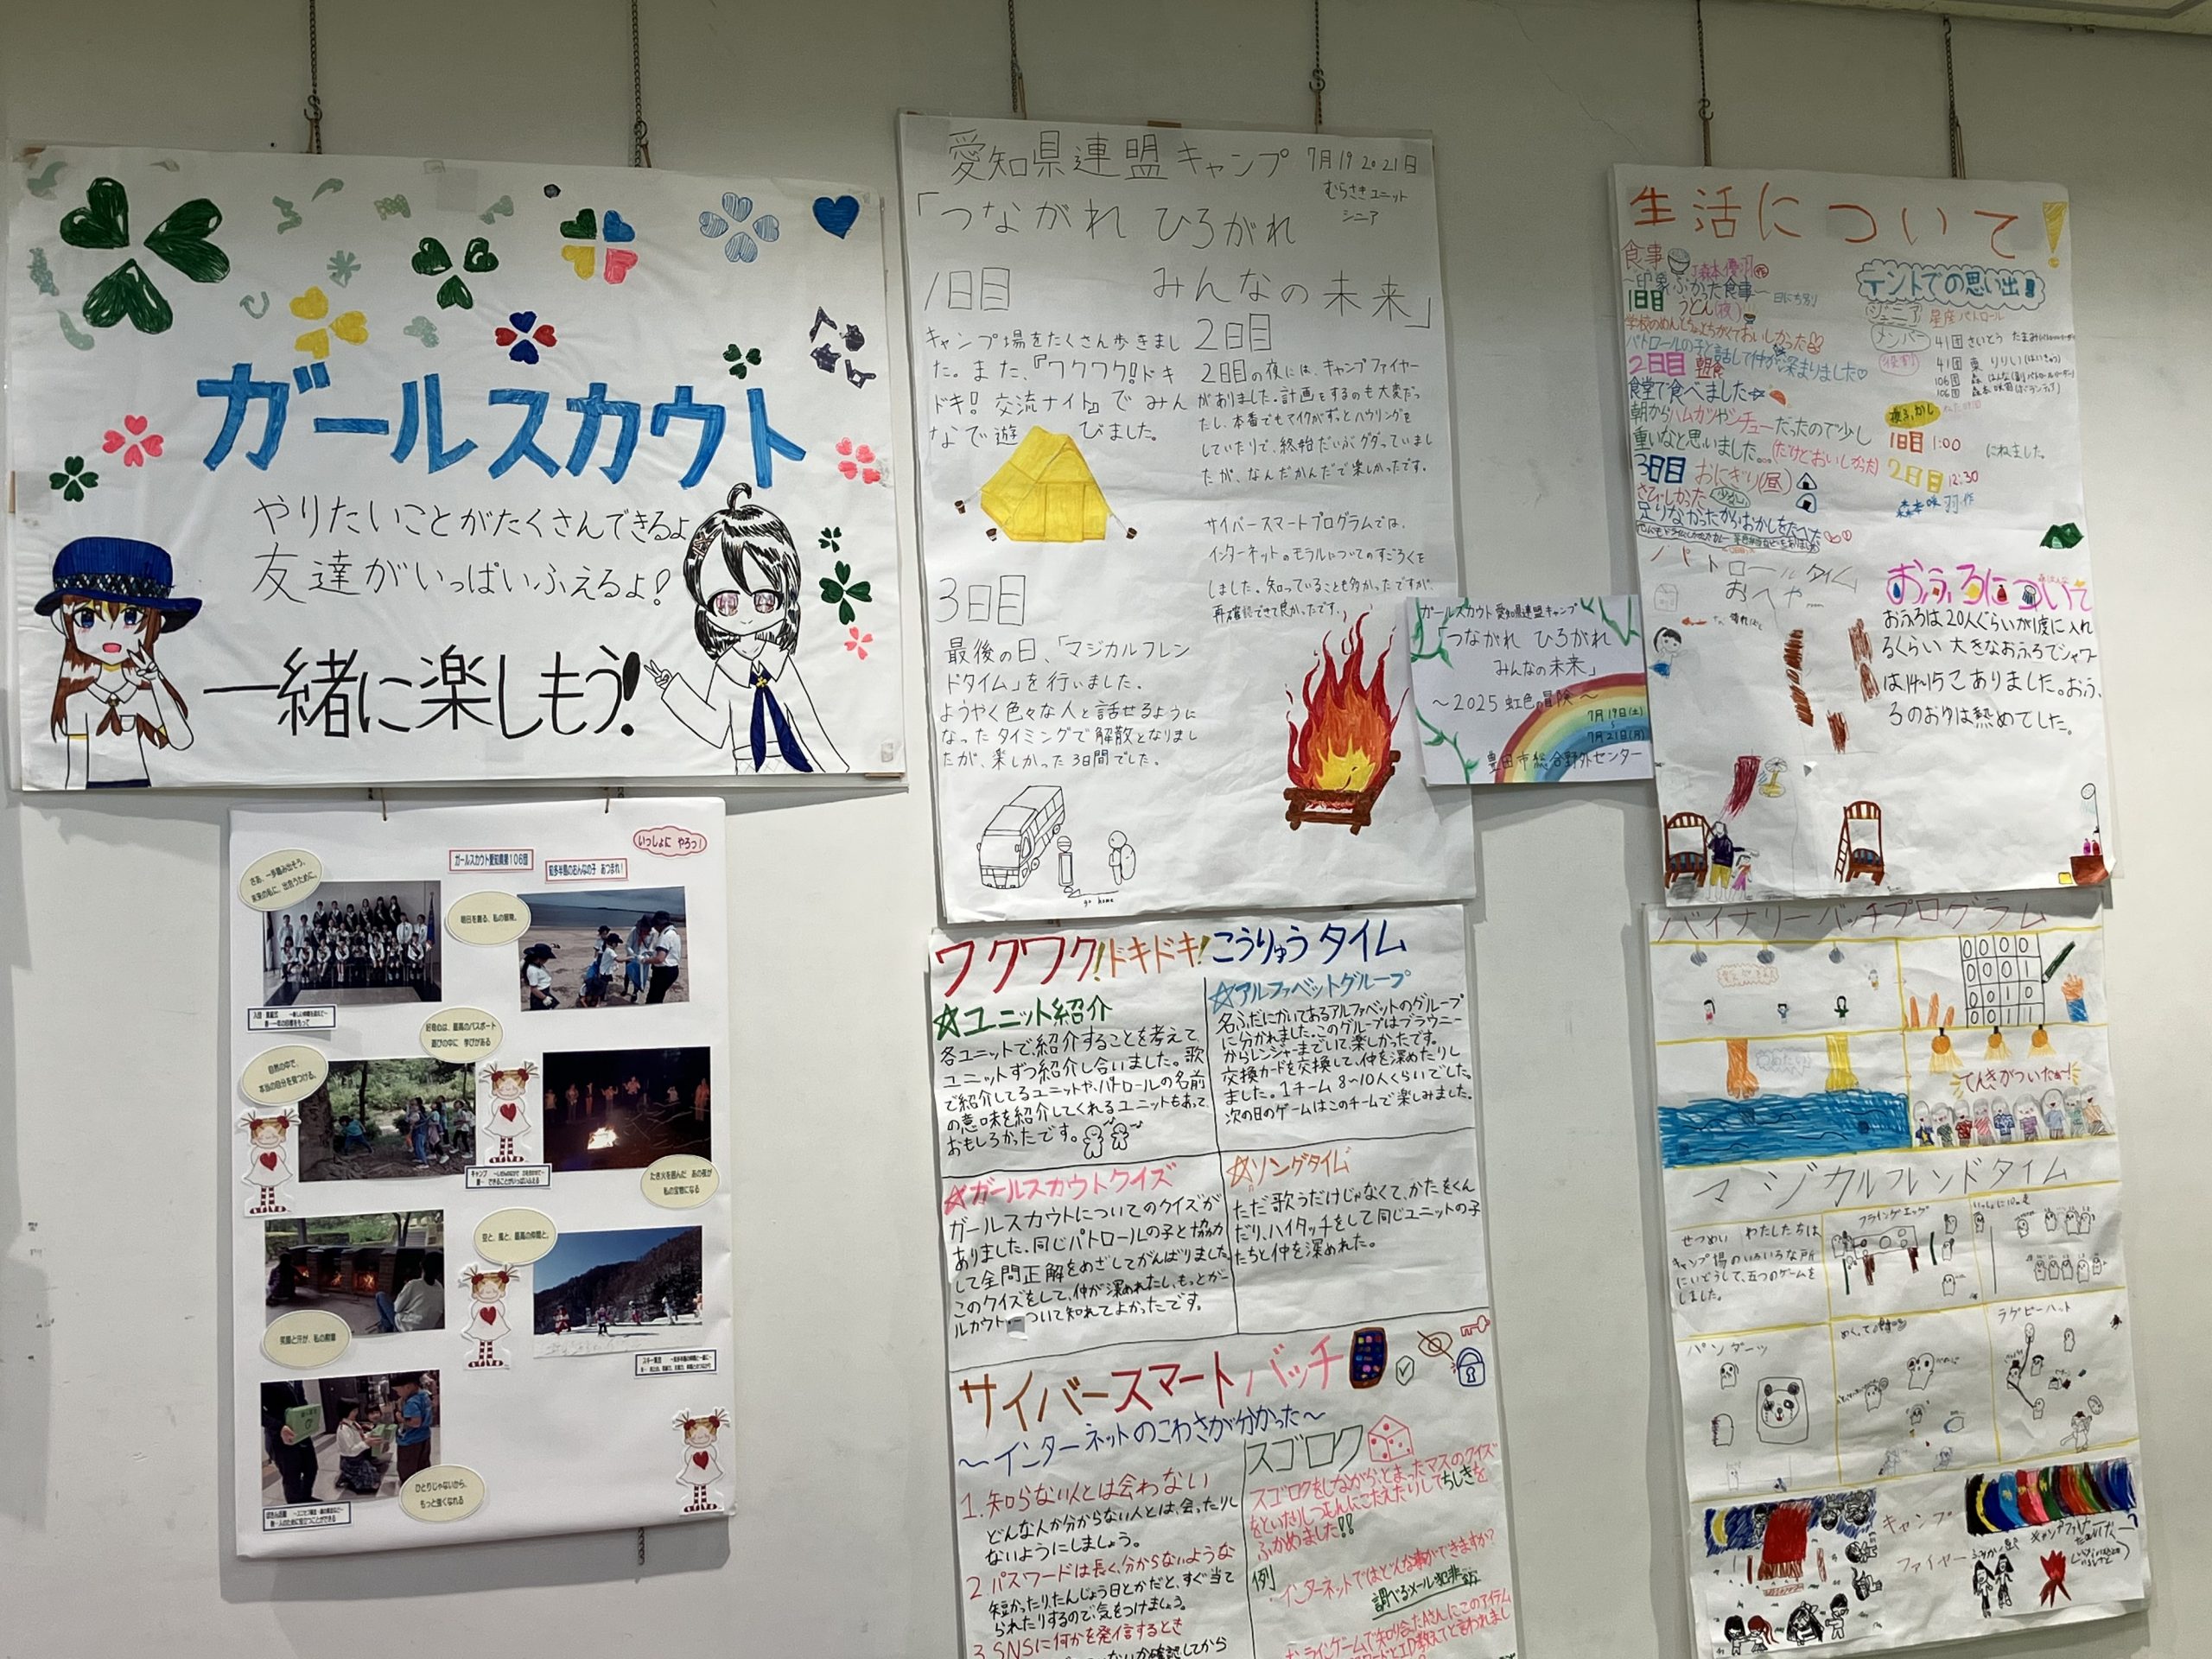 ガールスカウト
やりたいことがたくさんできるよ
友達がいっぱいふえるよ!
一緒に楽しもう!
いっしょに やろっ!
ガールスカウト愛知県第106団
知多半島のおんなの子 あつまれ!
さあ、一歩踏み出そう、
未来の私に、出会うために。
明日を創る、私の冒険。
好奇心は、最高のパスポート
遊びの中に 学びがある
自然の中で、
本当の自分を見つける。
たき火を囲んだ あの夜が
私の宝物になる
空と、風と、最高の仲間と。
笑顔と汗が、私の勲章
ひとりじゃないから、
もっと強くなれる
愛知県連盟キャンプ 7月19 20 21日
むらさきユニット
シニア
「つながれ ひろがれ
みんなの未来」
1日目
キャンプ場をたくさん歩きまし
た。また、『ワクワク!ドキ
ドキ!交流ナイト』でみん
なで遊びました。
2日目
2日目の夜には、キャンプファイヤー
がありました。計画をするのも大変だっ
たし、本番でもマイクがずっとハウリングを
していたりで、終始だいぶグダっていまし
たが、なんだかんだで楽しかったです。
サイバースマートプログラムでは、
インターネットのモラルについてのすごろくを
しました。知っていることも多かったですが、
再確認できて良かったです。
3日目
最後の日、「マジカルフレン
ドタイム」を行いました。
ようやく色々な人と話せるように
なったタイミングで解散となりまし
たが、楽しかった3日間でした。
go home
ガールスカウト愛知県連盟キャンプ
「つながれ ひろがれ
みんなの未来」
～2025 虹色の冒険～
7月19日(土)
7月21日(月)
豊田市総合野外センター
ワクワク!ドキドキ!こうりゅうタイム
☆ユニット紹介
各ユニットで、紹介することを考えて、
ユニットずつ紹介し合いました。歌
で紹介してるユニットや、パトロールの名前
の意味を紹介してくれるユニットもあって、
おもしろかったです。
☆アルファベットグループ
名ふだにかいてあるアルファベットのグループ
に分かれました。このグループはブラウニー
からレンジャーまでいて楽しかったです。
交換カードを交換して、仲を深めたりし
ました。1チーム 8～10人くらいでした。
次の日のゲームはこのチームで楽しみました。
☆ガールスカウトクイズ
ガールスカウトについてのクイズが
ありました。同じパトロールの子と協力
して全問正解をめざしてがんばりました。
このクイズをして、仲が深めれたし、もっとガー
ルカウトについて知れてよかったです。
☆ソングタイム
ただ歌うだけじゃなくて、かたをくん
だり、ハイタッチをして同じユニットの子
たちと仲を深めれた。
サイバースマートバッチ
～インターネットのこわさが分かった～
1.知らない人とは会わない
どんな人か分からない人とは、会ったりし
ないようにしましょう。
2 パスワードは長く、分からないような
短かったり、たんじょう日とかだと、すぐ当て
られたりするので、気をつけましょう。
3.SNSに何かを発信するとき
スゴロク
スゴロクをしながら、とまったマスのクイズ
をといたり、しつもんにこたえたりしてちしきを
ふかめました!!
例
インターネットではどんな事ができますか?
調べる、メール、犯罪
生活について!
食事
～印象ぶかった食事～
1日目 うどん(夜)
パトロールの子と話して仲が深まりました♡
2日目 朝食
食堂で食べました
朝からハムカツやシチューだったので少し
重いなと思いました。(だけどおいしかった)
3日目 おにぎり(昼)
足りなかったからおかしをたべた
テントでの思い出!
ジュニア 星座パトロール
メンバー
役割
夜ふかし
1日目 1:00
にねました。
2日目 12:30
パトロールタイム
おへや
おふろについて
おふろは20人ぐらいが1度に入れ
るくらい大きなおふろでシャワー
は、14~15こありました。おふ
ろのおゆは熱めでした。
バイナリーバッチプログラム
0000
0001
0010
0011
でんきがついたぁー!
マジカルフレンドタイム
せつめい わたしたちは
キャンプ場のいろいろな所
にいどうして、五つのゲームを
しました。
フライングエッグ
パンダーッ
ラグビーハット
キャンプ
ファイヤー